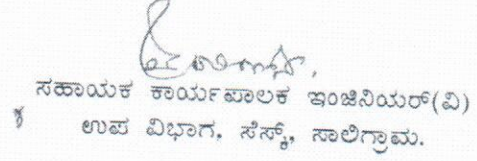 ಸಹಾಯಕ ಕಾರ್ಯಪಾಲಕ ಇಂಜಿನಿಯರ್(ವಿ)
ಉಪ ವಿಭಾಗ, ಸೆಸ್ಕ್, ಸಾಲಿಗ್ರಾಮ.